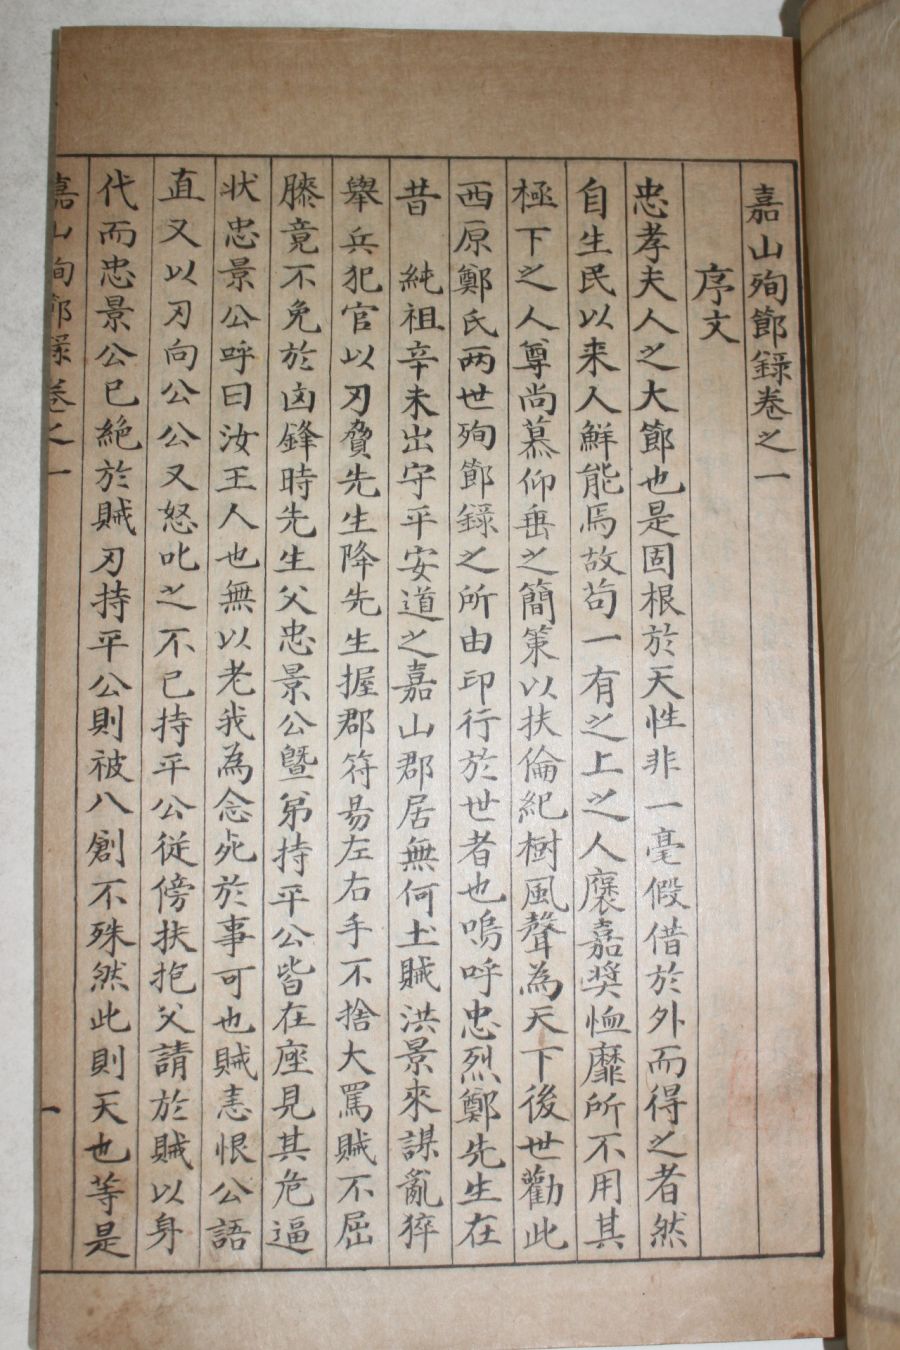 嘉山殉節錄卷之一
序文
忠孝夫人之大節也是固根於天性非一毫假借於外而得之者然
自生民以来人鮮能焉故苟一有之上之人褒嘉奬恤靡所不用其
極下之人尊尙慕仰垂之簡策以扶倫紀樹風聲為天下後世勸此
西原鄭氏两世殉節錄之所由印行於世者也嗚呼忠烈鄭先生在
昔　純祖辛未出守平安道之嘉山郡居無何土賊洪景來謀亂猝
舉兵犯官以刃脅先生降先生握郡符昜左右手不捨大罵賊不屈
膝竟不免於凶鋒時先生父忠景公曁弟持平公皆在座見其危逼
状忠景公呼曰汝王人也無以老我為念死於事可也賊恚恨公語
直又以刃向公公又怒叱之不已持平公従傍扶抱父請於賊以身
代而忠景公已絶於賊刃持平公則被八創不殊然此則天也等是
嘉山殉節錄卷之一
一